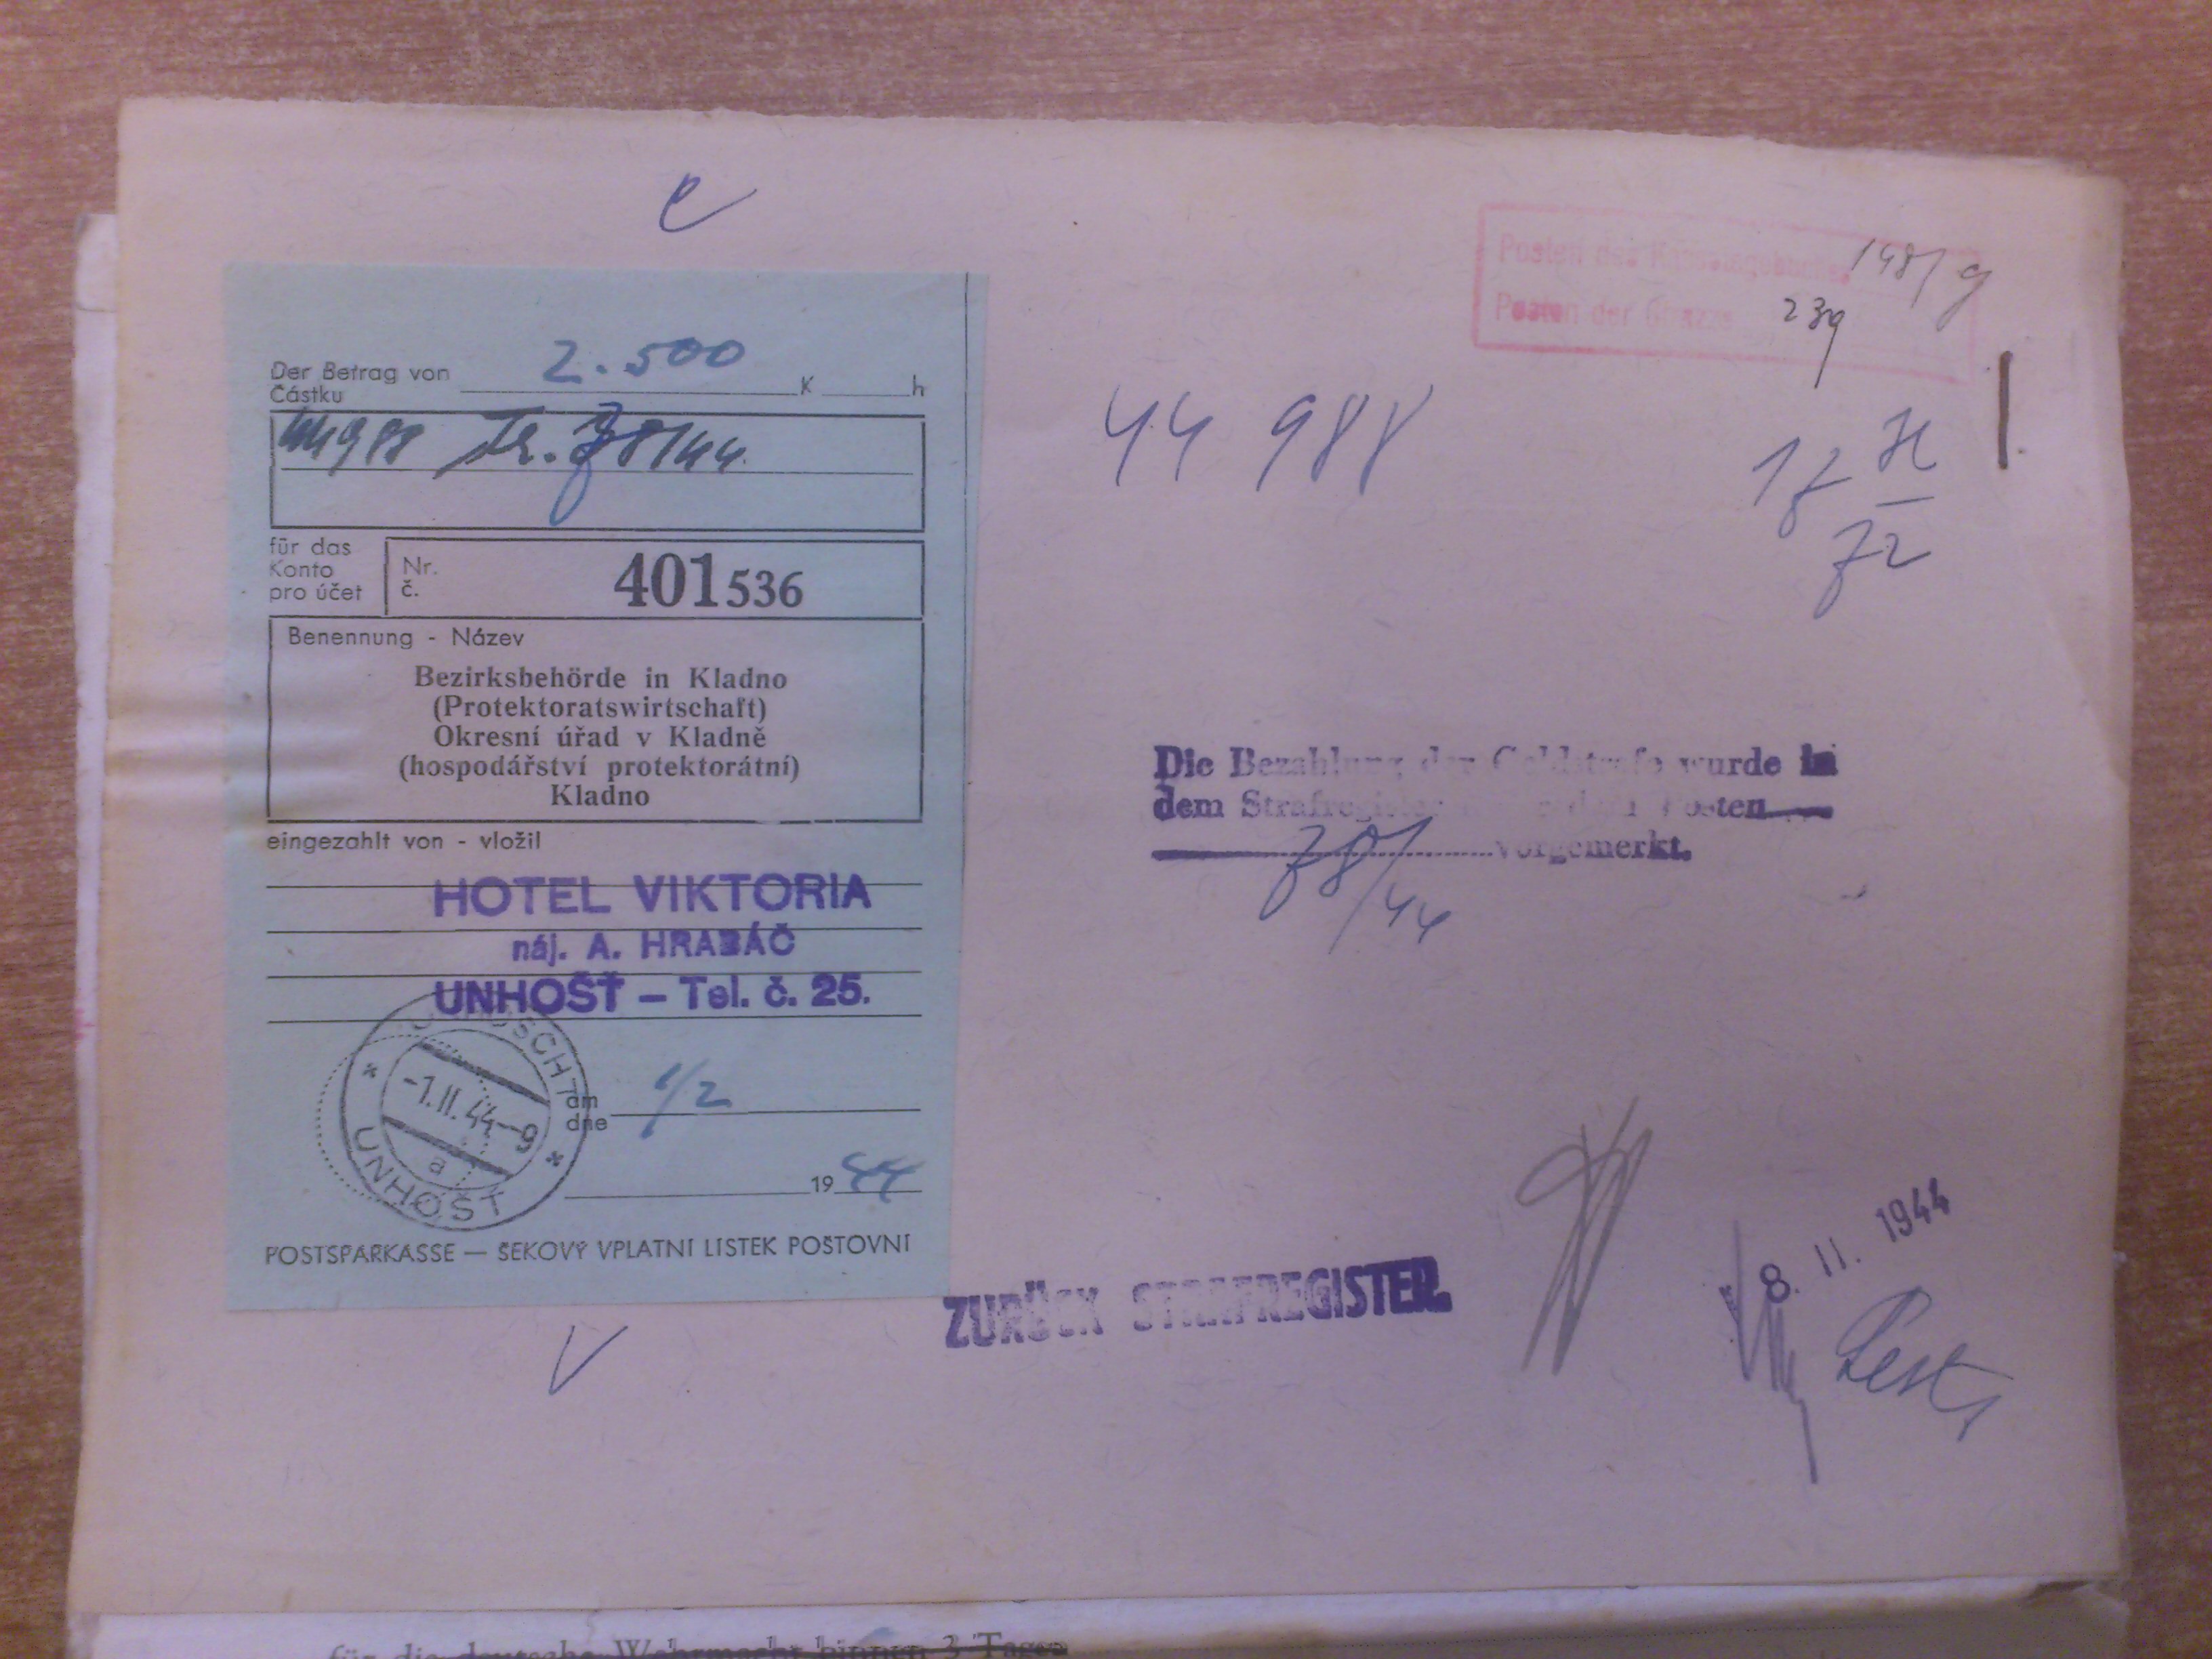 Der Betrag von 2.500 K h
Částku
44988 Tr. 78/44
für das
Konto
pro účet
Nr.
č.
401536
Benennung - Název
Bezirksbehörde in Kladno
(Protektoratswirtschaft)
Okresní úřad v Kladně
(hospodářství protektorátní)
Kladno
eingezahlt von - vložil
HOTEL VIKTORIA
náj. A. HRABÁČ
UNHOŠŤ – Tel. č. 25.
-1.II.44-9
a
UNHOŠŤ
am
dne
1/2
1944
POSTSPARKASSE — ŠEKOVÝ VPLATNÍ LÍSTEK POŠTOVNÍ
Posten des
148/g
Posten der
239
44 988
72
Die Bezahlung der Geldstrafe wurde in
dem Strafregister Posten
78/44 vorgemerkt.
ZURÜCK STRAFREGISTER.
8. II. 1944
für die deutsche Wehrmacht binnen 3 Tagen